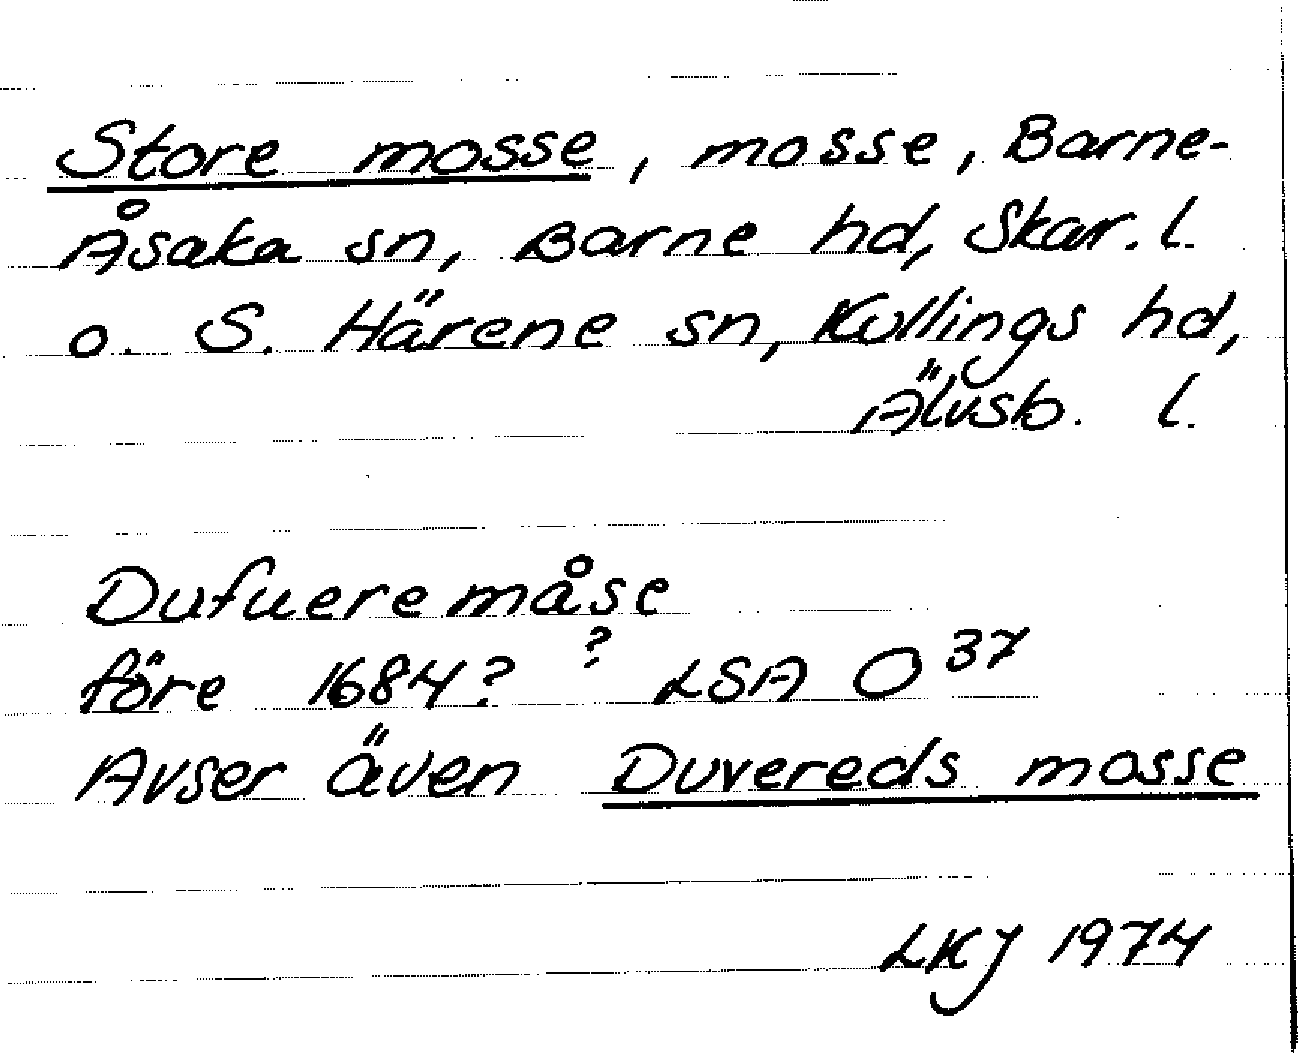 Store mosse, mosse, Barne-
Åsaka sn, Barne hd, Skar. l.
o. S. Härene sn, Kullings hd,
Älvsb. l.
Dufueremåse
?
före 1684? LSA O 37
Avser även Duvereds mosse
LKJ 1974